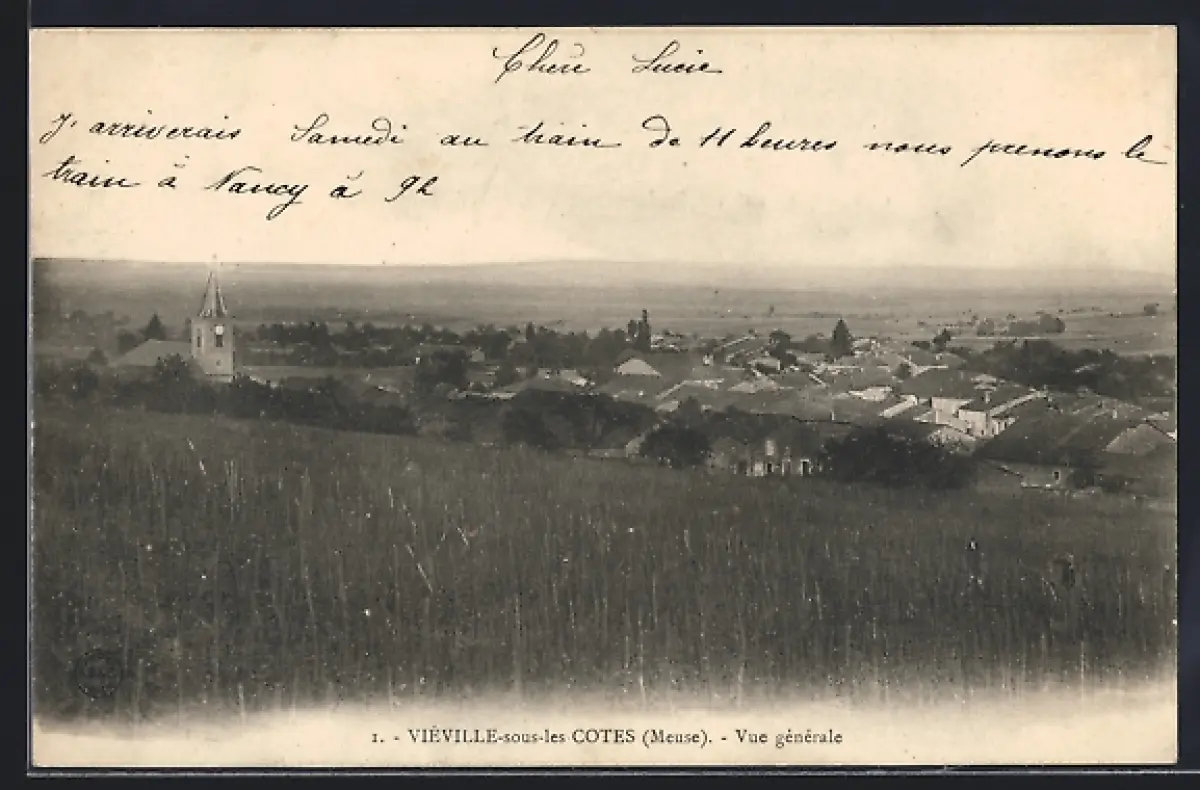 Chère Lucie
J'arriverais Samedi au train de 11 heures nous prenons le
train à Nancy à 9h
1. - VIÉVILLE-sous-les COTES (Meuse). - Vue générale